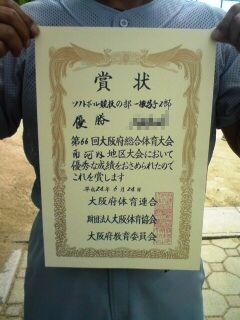 賞状
ソフトボール競技の部 一般男子2部
優勝
第66回大阪府総合体育大会
南河内地区大会において
優秀な成績をおさめられたので
これを賞します
平成24年6月24日
大阪府体育連合
財団法人大阪体育協会
大阪府教育委員会